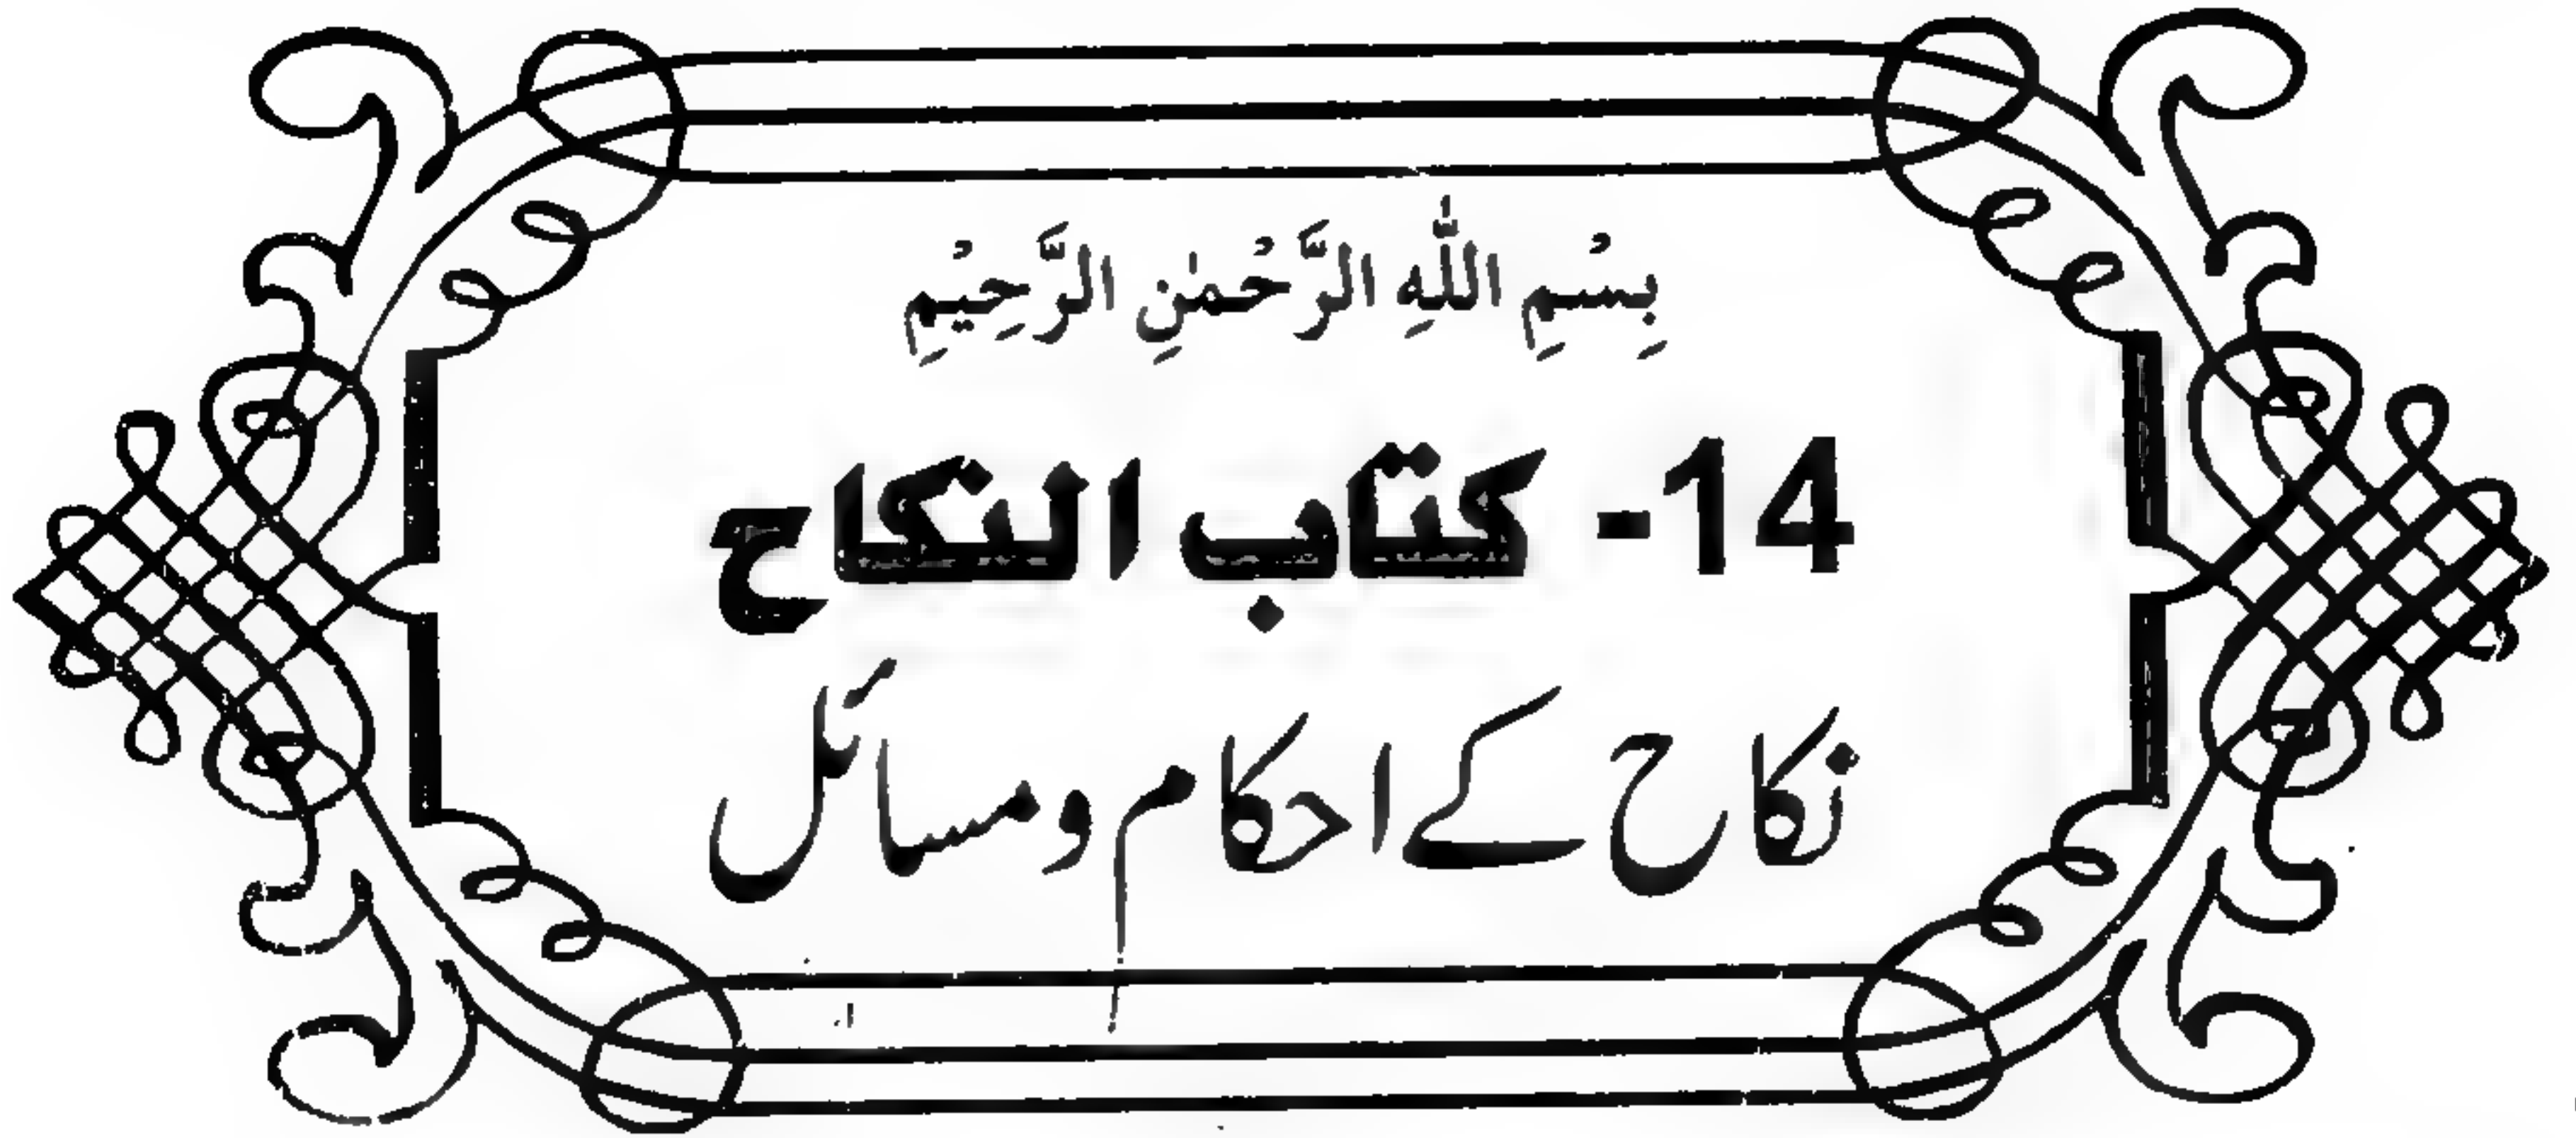 بِسْمِ اللّٰهِ الرَّحْمٰنِ الرَّحِيْمِ
14- كتاب النكاح
نکاح کے احکام و مسائل